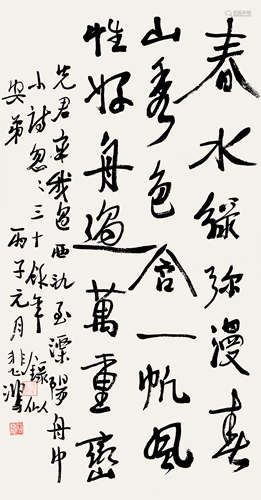 春水綠弥漫春
山秀色含一帆風
性好舟過萬重巒
先君率我過西氿至溧陽舟中
小詩忽〻三十餘年錄似
弟丙子元月悲鴻